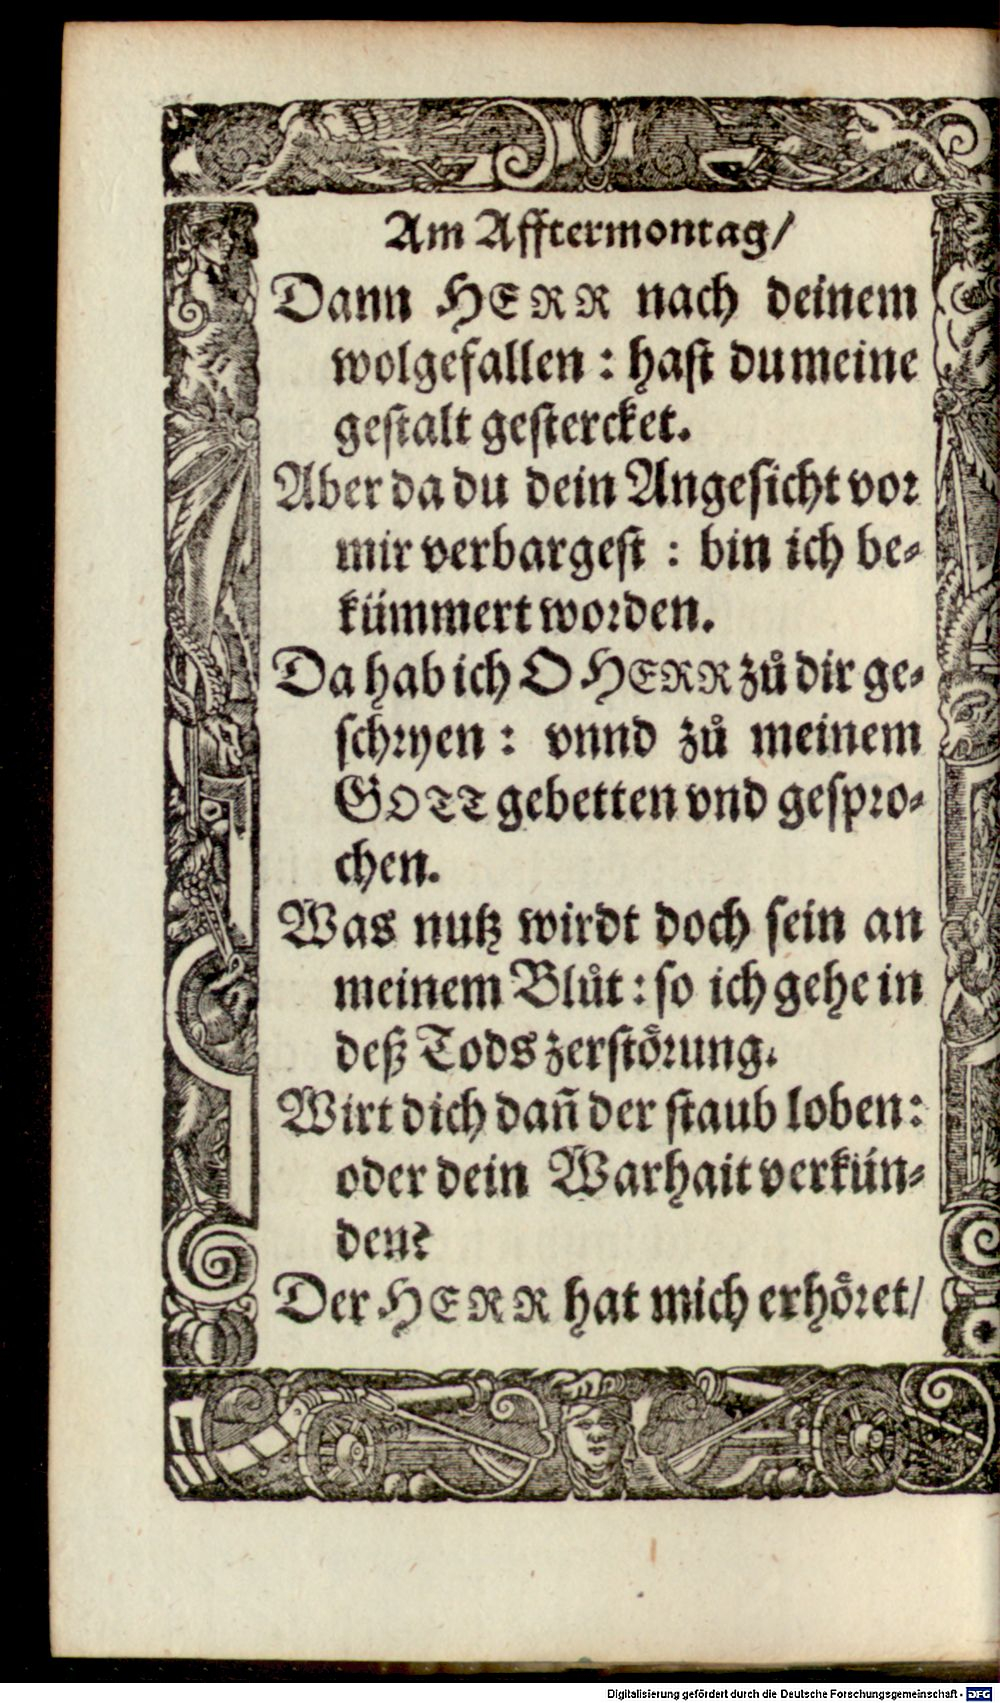 Am Afftermontag/
Dann HERR nach deinem
wolgefallen : hast du meine
gestalt gestercket.
Aber da du dein Angesicht vor
mir verbargest : bin ich be-
kümmert worden.
Da hab ich O HERR zů dir ge-
schryen : vnnd zů meinem
GOTT gebetten vnd gespro-
chen.
Was nutz wirdt doch sein an
meinem Blůt : so ich gehe in
deß Tods zerstörung.
Wirt dich dañ der staub loben:
oder dein Warhait verkün-
den?
Der HERR hat mich erhöret/
Digitalisierung gefördert durch die Deutsche Forschungsgemeinschaft - DFG